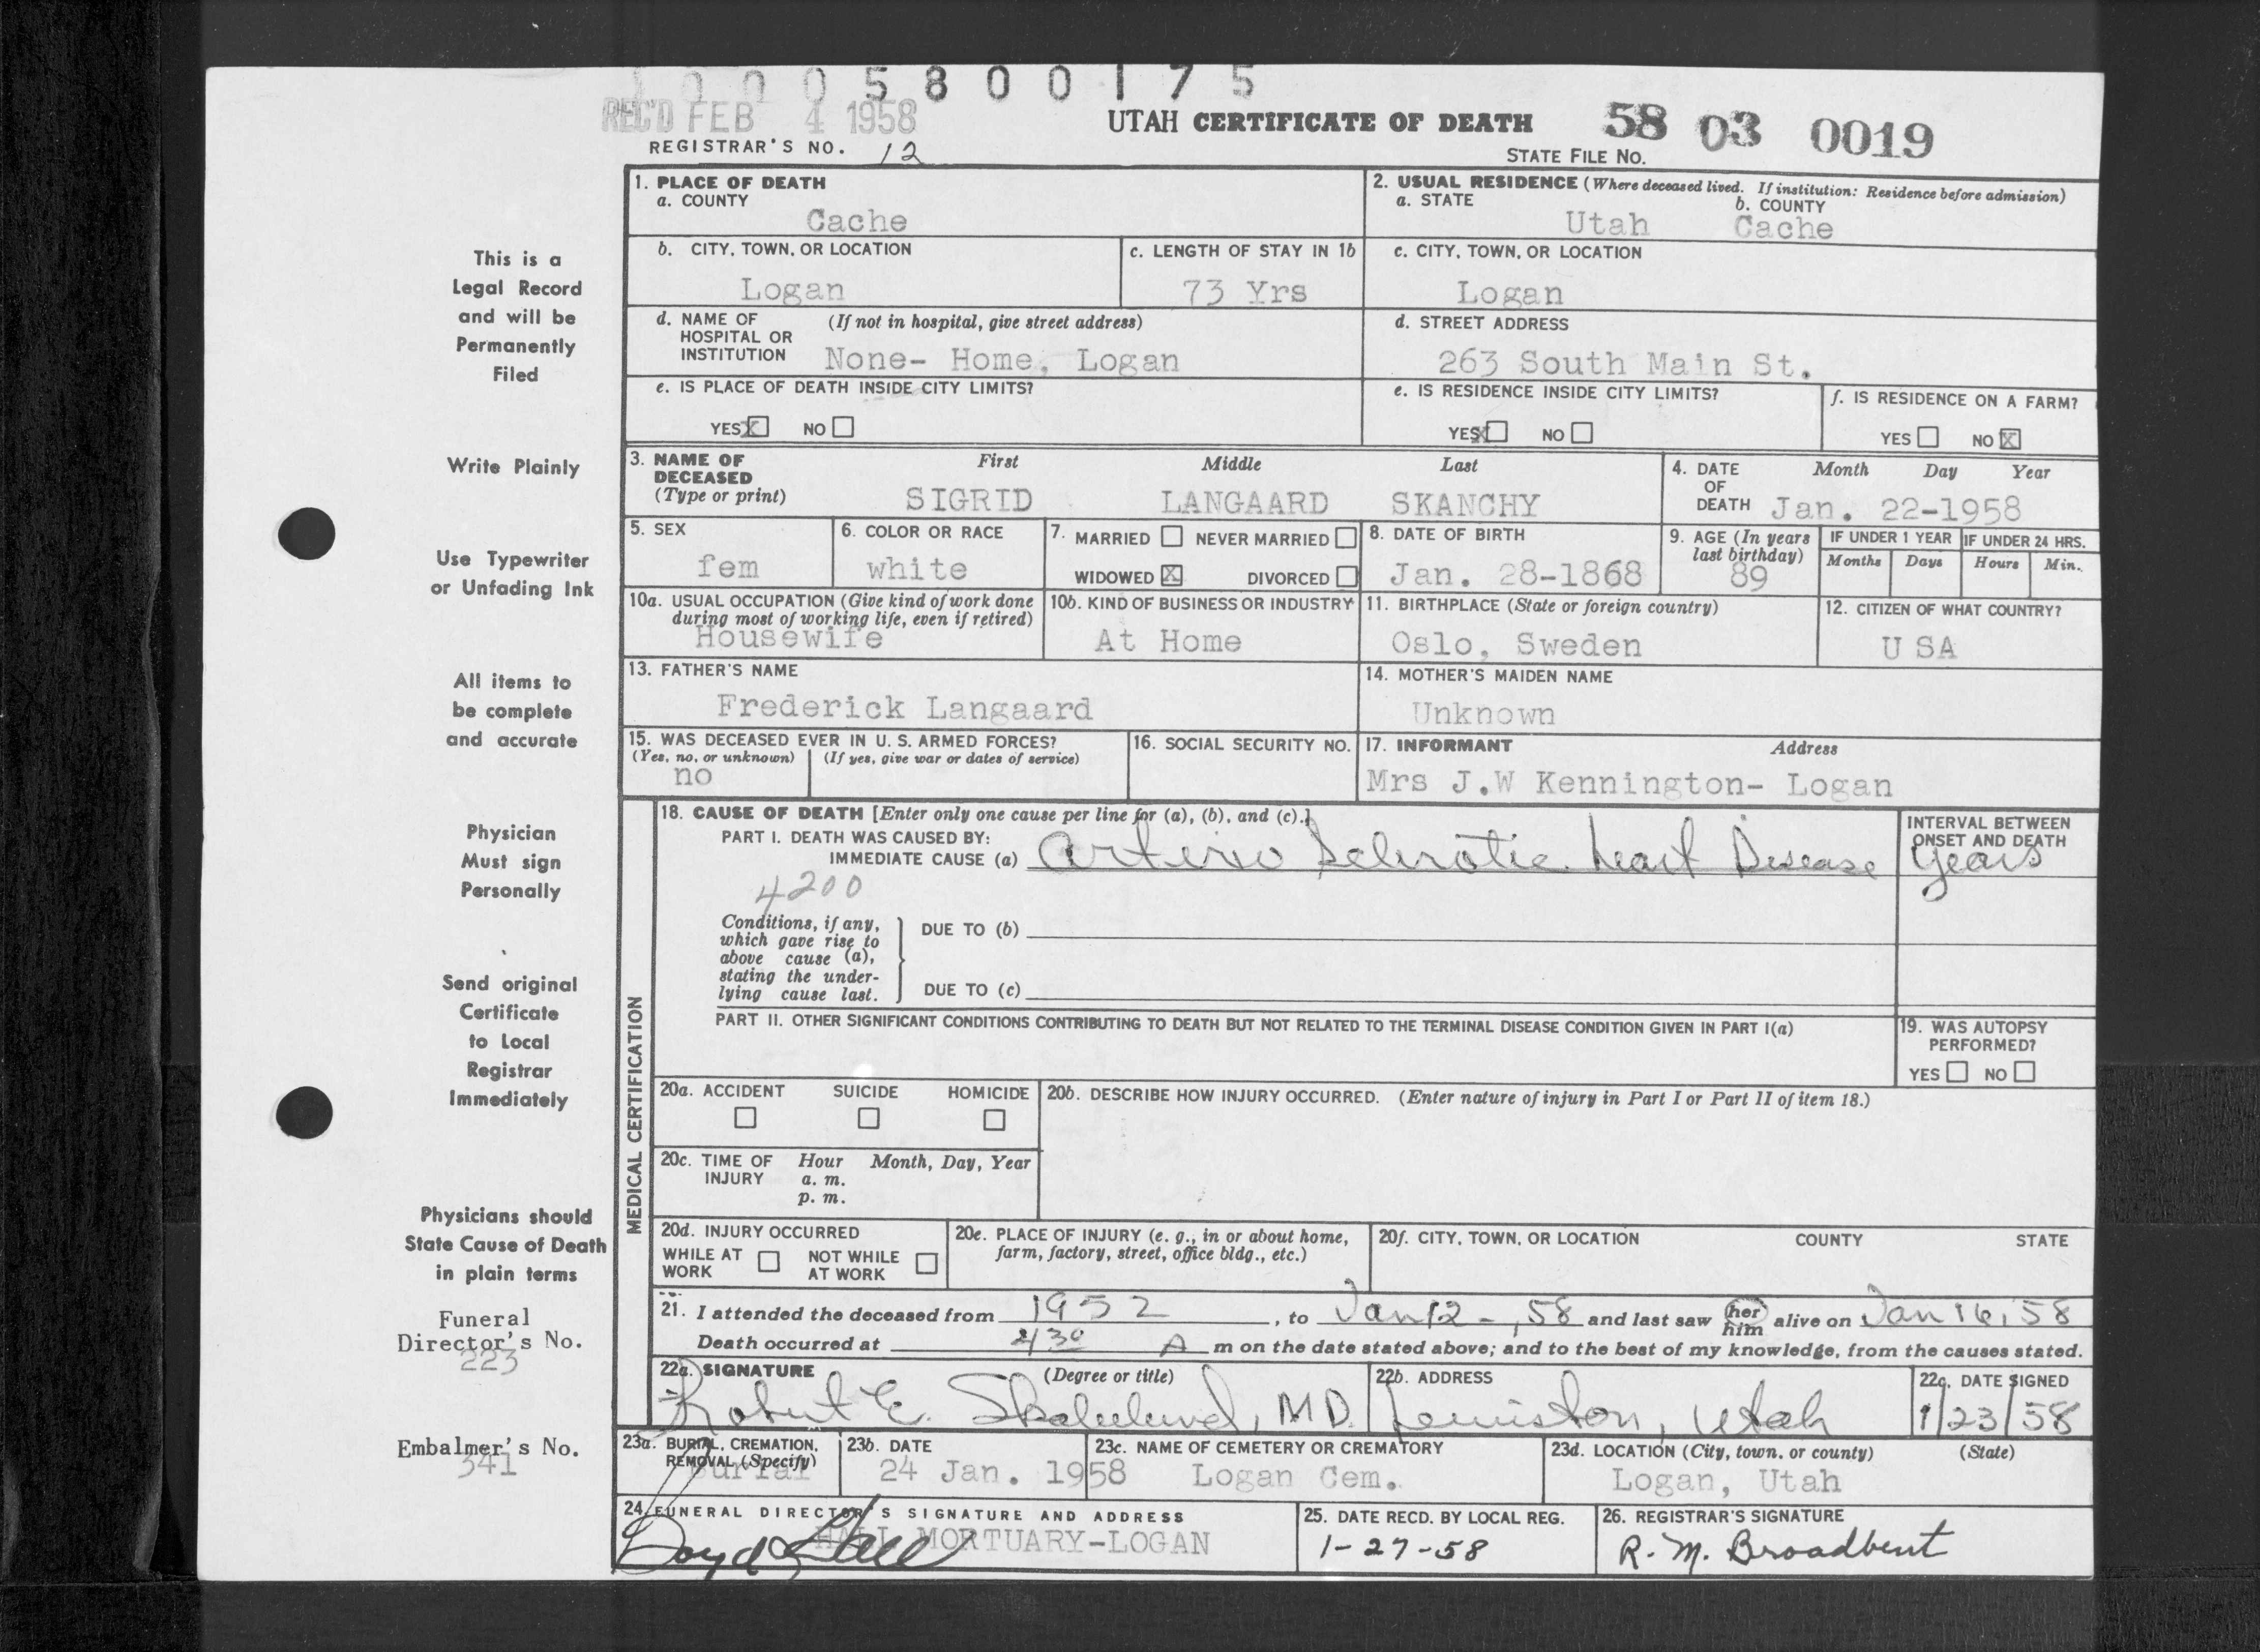 10005800175
REC'D FEB 4 1958
UTAH CERTIFICATE OF DEATH
58 03 0019
REGISTRAR'S NO. 12
STATE FILE NO.
1. PLACE OF DEATH
a. COUNTY
Cache
2. USUAL RESIDENCE (Where deceased lived. If institution: Residence before admission)
a. STATE
Utah
b. COUNTY
Cache
This is a
Legal Record
and will be
Permanently
Filed
b. CITY, TOWN, OR LOCATION
Logan
c. LENGTH OF STAY IN 1b
73 Yrs
c. CITY, TOWN, OR LOCATION
Logan
d. NAME OF HOSPITAL OR INSTITUTION
(If not in hospital, give street address)
None- Home, Logan
d. STREET ADDRESS
263 South Main St.
e. IS PLACE OF DEATH INSIDE CITY LIMITS?
YES X NO
e. IS RESIDENCE INSIDE CITY LIMITS?
YES X NO
f. IS RESIDENCE ON A FARM?
YES NO X
Write Plainly
3. NAME OF DECEASED
(Type or print)
First Middle Last
SIGRID LANGAARD SKANCHY
4. DATE OF DEATH
Month Day Year
Jan. 22-1958
Use Typewriter
or Unfading Ink
5. SEX
fem
6. COLOR OR RACE
white
7. MARRIED NEVER MARRIED
WIDOWED X DIVORCED
8. DATE OF BIRTH
Jan. 28-1868
9. AGE (In years last birthday)
89
IF UNDER 1 YEAR
Months Days
IF UNDER 24 HRS.
Hours Min.
10a. USUAL OCCUPATION (Give kind of work done during most of working life, even if retired)
Housewife
10b. KIND OF BUSINESS OR INDUSTRY
At Home
11. BIRTHPLACE (State or foreign country)
Oslo, Sweden
12. CITIZEN OF WHAT COUNTRY?
U SA
All items to
be complete
and accurate
13. FATHER'S NAME
Frederick Langaard
14. MOTHER'S MAIDEN NAME
Unknown
15. WAS DECEASED EVER IN U. S. ARMED FORCES?
(Yes, no, or unknown) (If yes, give war or dates of service)
no
16. SOCIAL SECURITY NO.
17. INFORMANT Address
Mrs J.W Kennington- Logan
Physician
Must sign
Personally
MEDICAL CERTIFICATION
18. CAUSE OF DEATH [Enter only one cause per line for (a), (b), and (c).]
PART I. DEATH WAS CAUSED BY:
IMMEDIATE CAUSE (a) Arterio Sclerotic heart Disease
INTERVAL BETWEEN ONSET AND DEATH
years
4200
Conditions, if any,
which gave rise to
above cause (a),
stating the under-
lying cause last.
DUE TO (b)
DUE TO (c)
Send original
Certificate
to Local
Registrar
Immediately
PART II. OTHER SIGNIFICANT CONDITIONS CONTRIBUTING TO DEATH BUT NOT RELATED TO THE TERMINAL DISEASE CONDITION GIVEN IN PART I(a)
19. WAS AUTOPSY PERFORMED?
YES NO
20a. ACCIDENT SUICIDE HOMICIDE
20b. DESCRIBE HOW INJURY OCCURRED. (Enter nature of injury in Part I or Part II of item 18.)
20c. TIME OF INJURY
Hour Month, Day, Year
a. m.
p. m.
Physicians should
State Cause of Death
in plain terms
20d. INJURY OCCURRED
WHILE AT WORK NOT WHILE AT WORK
20e. PLACE OF INJURY (e. g., in or about home, farm, factory, street, office bldg., etc.)
20f. CITY, TOWN, OR LOCATION COUNTY STATE
Funeral
Director's No.
223
21. I attended the deceased from 1952, to Jan 12 -, 58 and last saw her him alive on Jan 16, 58
Death occurred at 4 30 A m on the date stated above; and to the best of my knowledge, from the causes stated.
22a. SIGNATURE (Degree or title)
Robert E. Skabelund, MD.
22b. ADDRESS
Lewiston, Utah
22c. DATE SIGNED
1/23/58
Embalmer's No.
341
23a. BURIAL, CREMATION, REMOVAL (Specify)
Burial
23b. DATE
24 Jan. 1958
23c. NAME OF CEMETERY OR CREMATORY
Logan Cem.
23d. LOCATION (City, town, or county) (State)
Logan, Utah
24. FUNERAL DIRECTOR'S SIGNATURE AND ADDRESS
HALL MORTUARY-LOGAN
25. DATE RECD. BY LOCAL REG.
1-27-58
26. REGISTRAR'S SIGNATURE
R. M. Broadbent